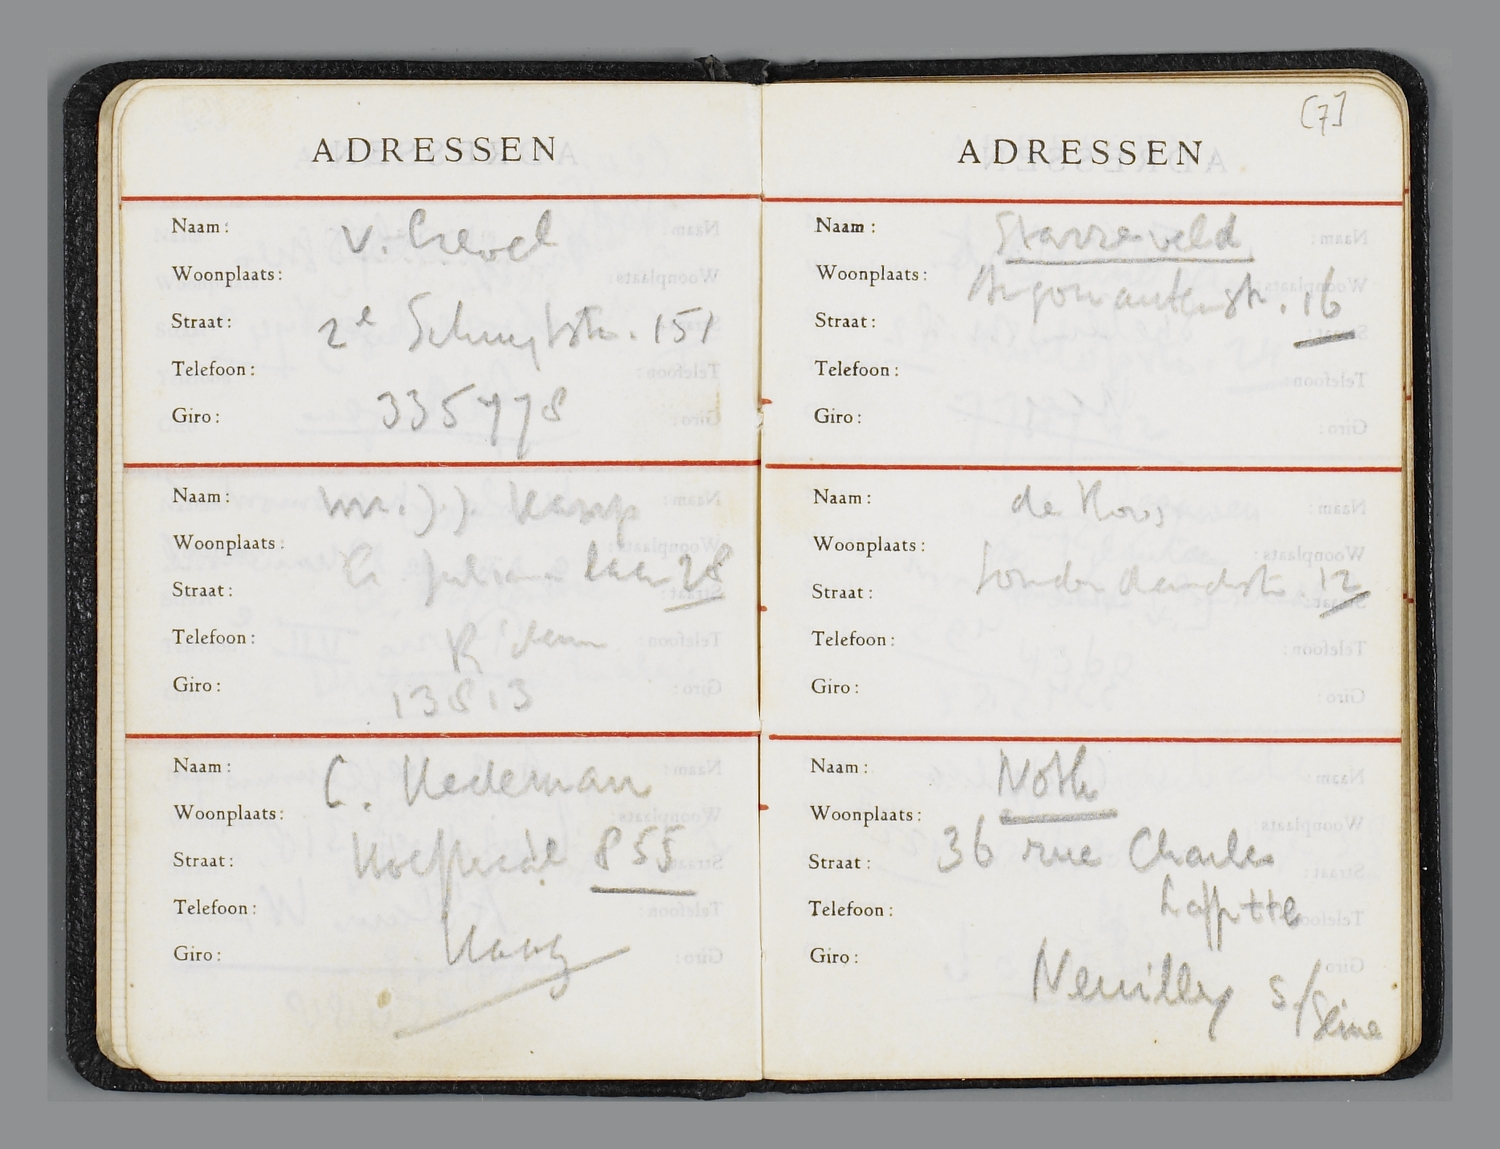 ADRESSEN
Naam: v. Crevel
Woonplaats:
Straat: 2e Schuytstr. 151
Telefoon:
Giro: 335778
Naam: Mr. J. J. Kamp
Woonplaats:
Straat: Juliana laan 28
Telefoon:
Giro: 13813
Naam: C. Hedeman
Woonplaats:
Straat: 855
Telefoon:
Haag
Giro:
[7]
ADRESSEN
Naam: Starreveld
Woonplaats: Argonautenstr. 16
Straat:
Telefoon:
Giro:
Naam: de Roos
Woonplaats:
Straat: 12
Telefoon:
Giro:
Naam: Noth
Woonplaats:
Straat: 36 rue Charles
Telefoon: Laffitte
Giro: Neuilly s/Seine